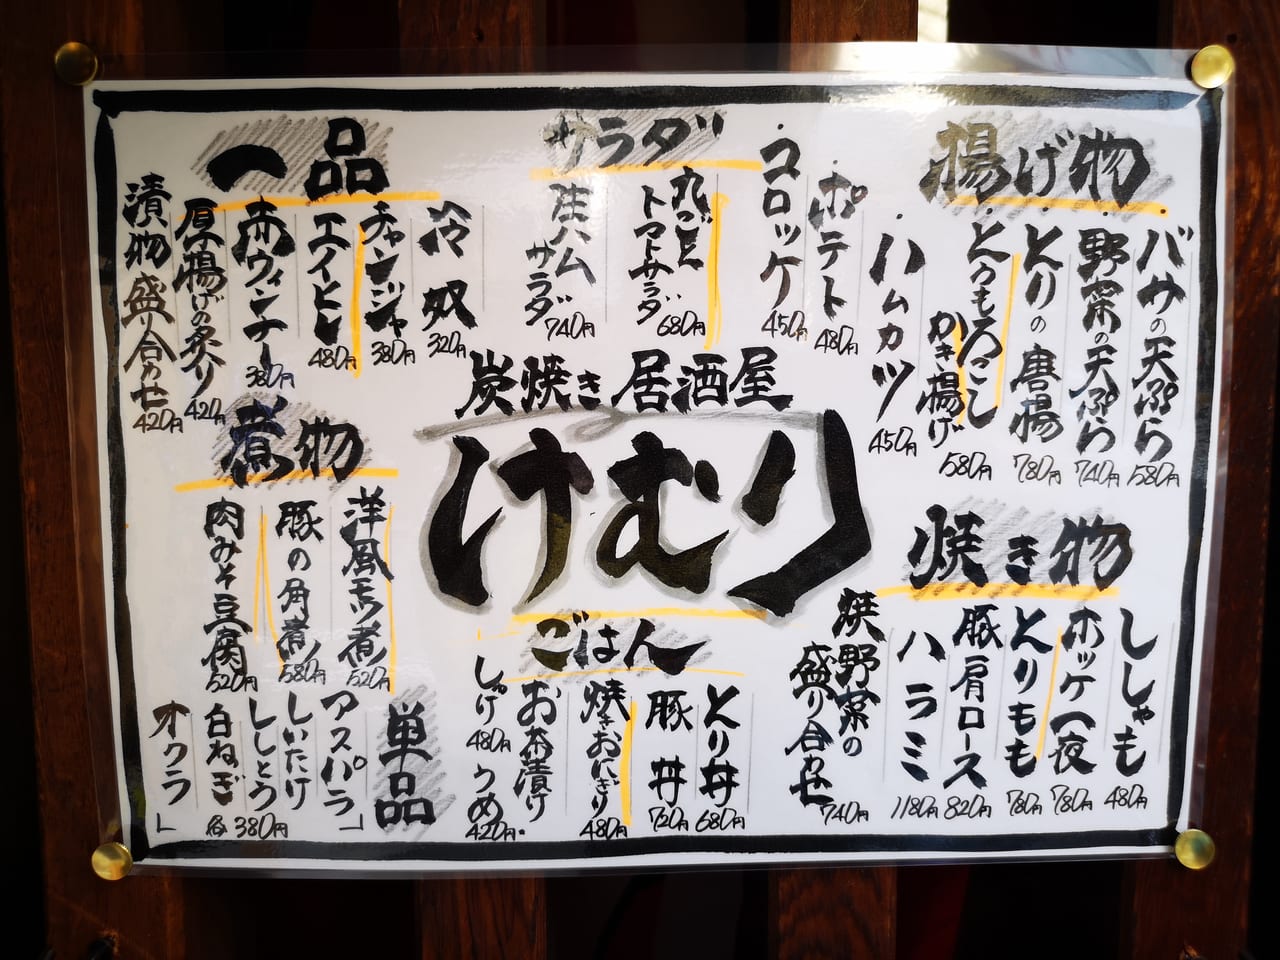 揚げ物
バサの天ぷら 580円
野菜の天ぷら 740円
とりの唐揚 780円
とうもろこし
かき揚げ 580円
ハムカツ 450円
ポテト 480円
コロッケ 450円
サラダ
丸ごと
トマトサラダ 680円
生ハム
サラダ 740円
一品
冷奴 320円
チャンジャ 380円
エイヒレ 480円
赤ウィンナー 380円
厚揚げの炙り 420円
漬物盛合わせ 420円
炭焼き居酒屋
けむり
焼き物
ししゃも 480円
ホッケ一夜 780円
とりもも 780円
豚肩ロース 820円
ハラミ 1180円
焼野菜の
盛り合わせ 740円
ごはん
とり丼 680円
豚丼 720円
焼きおにぎり 480円
お茶漬け
しゃけ 480円
うめ 420円
煮物
洋風モツ煮 520円
豚の角煮 580円
肉みそ豆腐 520円
単品
アスパラ
しいたけ
ししとう
白ねぎ
オクラ
各380円